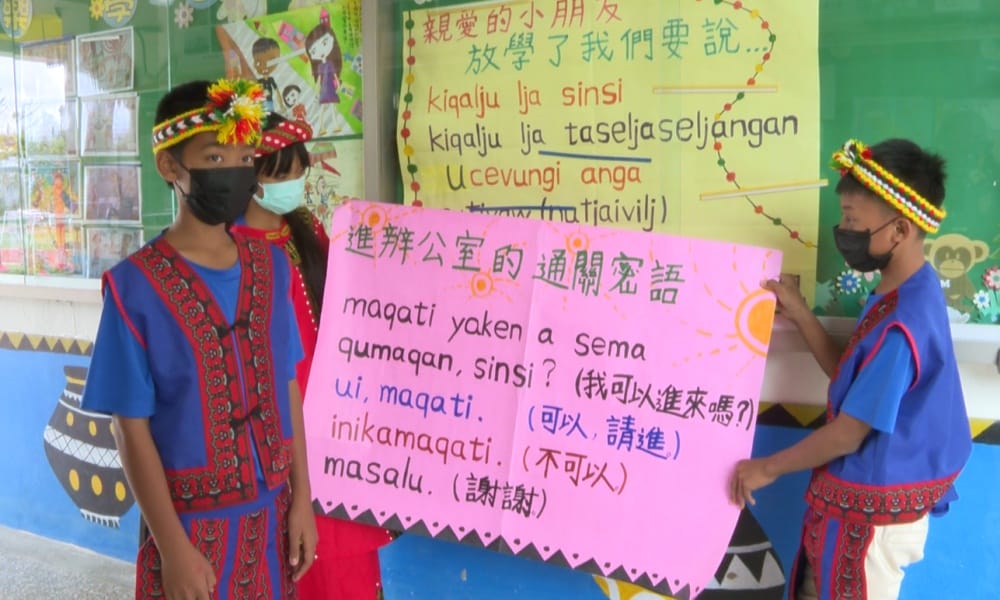 樂 學
親愛的小朋友
放學了我們要說...
kiqalju lja sinsi
kiqalju lja taseljaseljangan
ucevungi anga
(patjaivilj)
進辦公室的通關密語
maqati yaken a sema
qumaqan, sinsi? (我可以進來嗎?)
ui, maqati. (可以,請進。)
inikamaqati. (不可以)
masalu. (謝謝)